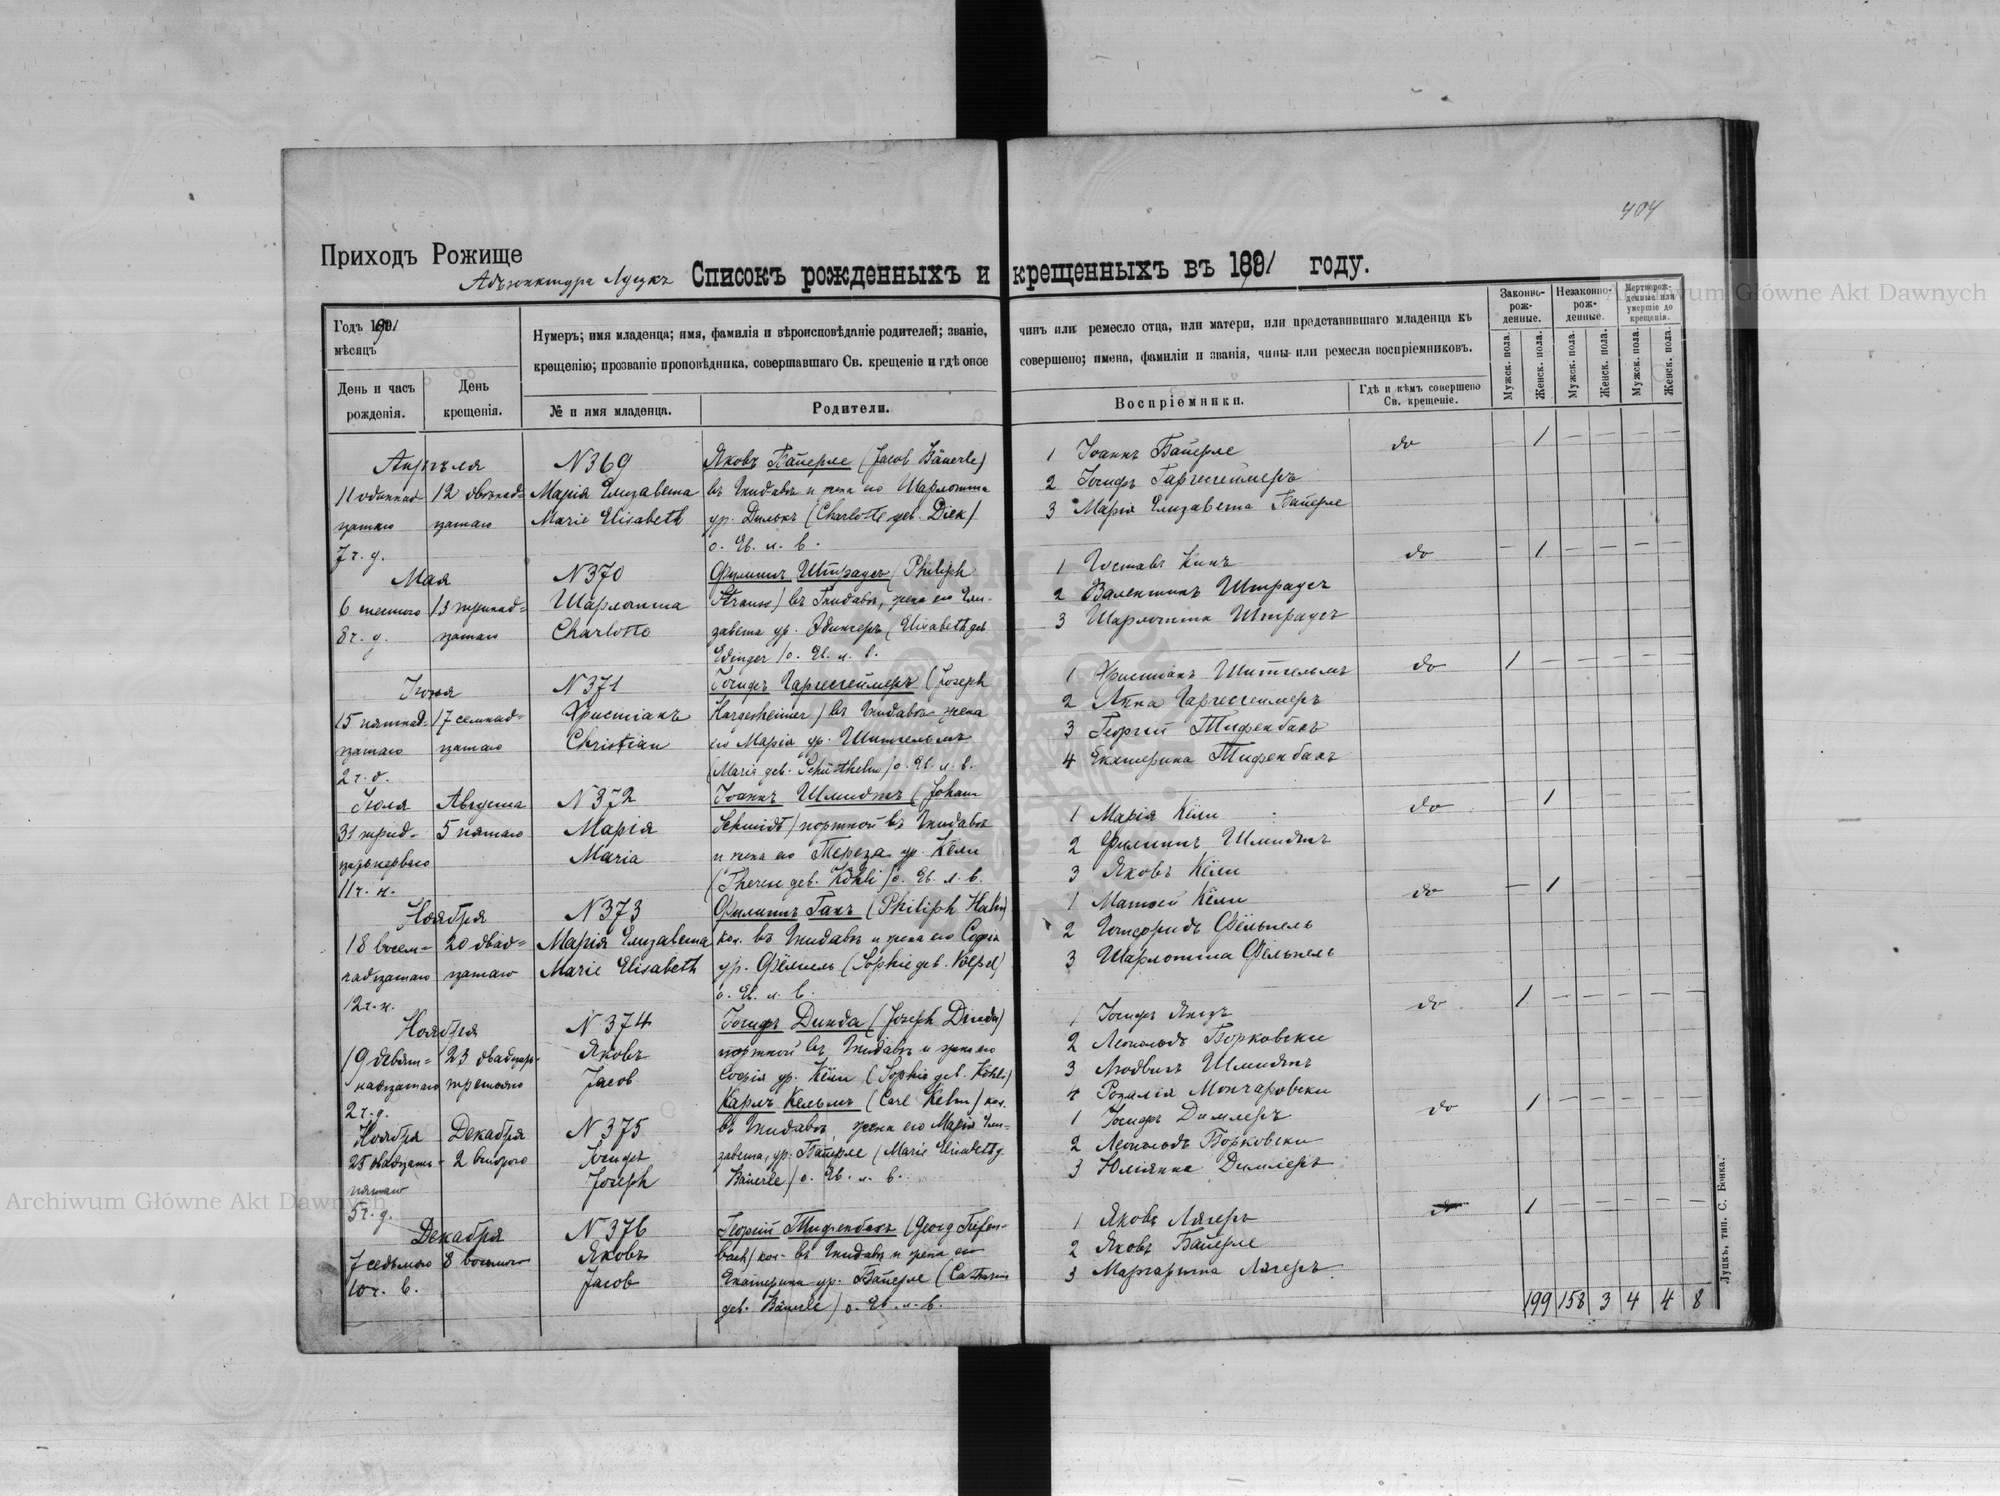 404
Приходъ Рожище
Адъюнктура Луцкъ
Списокъ рожденныхъ и крещенныхъ въ 1891 году.
Годъ 1891
мѣсяцъ
День и часъ рожденія.
День крещенія.
Нумеръ; имя младенца; имя, фамилія и вѣроисповѣданіе родителей; званіе, чинъ или ремесло отца, или матери, или представившаго младенца къ
крещенію; прозваніе проповѣдника, совершавшаго Св. крещеніе и гдѣ оное совершено; имена, фамиліи и званія, чины или ремесла воспріемниковъ.
№ и имя младенца.
Родители.
Воспріемники.
Гдѣ и кѣмъ совершено Св. крещеніе.
Законно-рож-денные.
Незаконно-рож-денные.
Мертворож-денные или умершіе до крещенія.
Мужск. пола.
Женск. пола.
Мужск. пола.
Женск. пола.
Мужск. пола.
Женск. пола.
Апрѣля
11 одиннад-
цатаго
7 ч. у.
12 двѣнад-
цатаго
N 369
Марія Елизавета
Marie Elisabeth
Яковъ Байерле (Jacob Bäuerle)
въ и жена его Шарлотта
ур. Дилькъ (Charlotte geb.
о. Ев. л. в.
1 Іоаннъ Байерле
2 Іосифъ Гаргесгеймеръ
3 Марія Елизавета Байерле
do
— 1 — — — —
Мая
6 шестого
8 ч. у.
13 тринад-
цатаго
N 370
Шарлотта
Charlotte
Филиппъ Штраусъ (Philiph
Strauss) въ жена его Ели-
завета ур. Эдингеръ (Elisabeth geb.
Edinger) о. Ев. л. в.
1 Густавъ
2 Валентинъ Штраусъ
3 Шарлотта Штраусъ
do
— 1 — — — —
Іюня
15 пятнад-
цатаго
2 ч. д.
17 семнад-
цатаго
N 371
Христіанъ
Christian
Іосифъ Гаргесгеймеръ (Joseph
Hargesheimer) въ жена
его Марія ур. Шитгельмъ
(Marie geb. Schütthelm) о. Ев. л. в.
1 Христіанъ Шитгельмъ
2 Анна Гаргесгеймеръ
3 Георгій Тифенбахъ
4 Екатерина Тифенбахъ
do
1 — — — — —
Іюля
31 трид-
цать перваго
11 ч. н.
Августа
5 пятаго
N 372
Марія
Maria
Іоаннъ Шмидтъ (Johann
Schmidt) портной въ
и жена его Тереза ур. Кёли
geb. Köhli) о. Ев. л. в.
1 Марія Кёли
2 Филиппъ Шмидтъ
3 Яковъ Кёли
do
— 1 — — — —
Ноября
18 восем-
надцатаго
12 ч. н.
20 двад-
цатаго
N 373
Марія Елизавета
Marie Elisabeth
Филиппъ Ганъ (Philiph Hahn)
кол. въ и жена его Софія
ур. Фёлпель (Sophie geb. Völpel)
о. Ев. л. в.
1 Матвей Кёли
2 Готфридъ Фёльпель
3 Шарлотта Фёльпель
do
— 1 — — — —
Ноября
19 девят-
надцатаго
2 ч. д.
23 двадцать
третьяго
N 374
Яковъ
Jacob
Іосифъ Динда (Joseph Dinda)
портной въ и жена его
Софія ур. Кёли (Sophie geb. Köhli)
1 Іосифъ
2 Леопольдъ Борковски
3 Людвигъ Шмидтъ
4 Розалія Мончаровски
do
1 — — — — —
Ноября
25 двадцать
пятаго
5 ч. д.
Декабря
2 второго
N 375
Іосифъ
Joseph
Карлъ Кельмъ (Carl Kelm) кол.
въ жена его Марія Ели-
завета, ур. Байерле (Marie Elisabeth g.
Bäuerle) о. Ев. л. в.
1 Іосифъ Димлеръ
2 Леопольдъ Борковски
3 Юліянна Димлеръ
do
1 — — — — —
Декабря
7 седьмого
10 ч. в.
8 восьмого
N 376
Яковъ
Jacob
Георгій Тифенбахъ (Georg Tiefen-
bach) кол. въ и жена его
Екатерина ур. Байерле (Catharina
geb. Bäuerle) о. Ев. л. в.
1 Яковъ Лягеръ
2 Яковъ Байерле
3 Маргарита Лягеръ
do
1 — — — — —
199 158 3 4 4 8
Луцкъ, тип. С. Бонка.
Archiwum Główne Akt Dawnych
Archiwum Główne Akt Dawnych